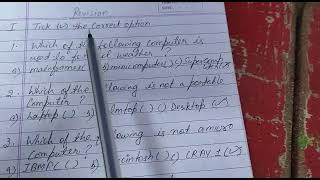 Revision
I Tick (✓) the correct option
1. Which of the following computer is
used to forecast weather?
a) mainframe( ) b) minicomputer( ) c) Supercomp
2. Which of the lowing is not a portable
Computer?
a) Laptop( ) lmtop( ) c) Desktop (✓)
3. Which of the owing is not a micro
Computer?
a) IBMPC( ) b) cintosh( ) c) CRAY 1 (✓)